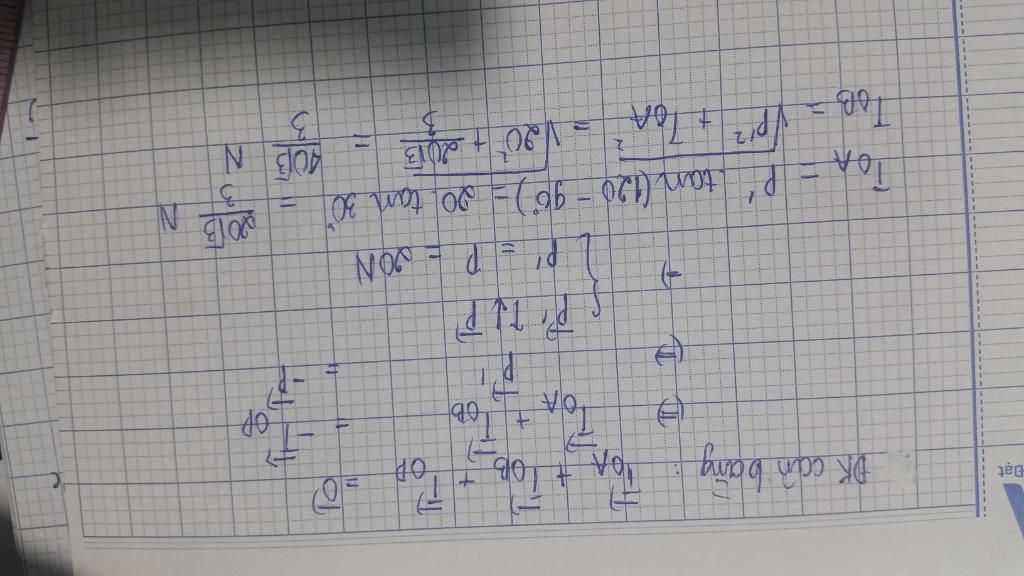 ĐK cân bằng: $\vec{T}_{OA} + \vec{T}_{OB} + \vec{T}_{OP} = \vec{0}$
(=) $\vec{T}_{OA} + \vec{T}_{OB} = -\vec{T}_{OP}$
(=) $\vec{P'} = -\vec{P}$
$\vec{P'}$ ↑↓ $\vec{P}$
→ { P' = P = 20N
$T_{OA}$ = P' . tan(120 - 90°) = 20 . tan 30° = $\frac{20\sqrt{3}}{3}$ N
$T_{OB}$ = $\sqrt{P'^2 + T_{OA}^2}$ = $\sqrt{20^2 + \frac{20\sqrt{3}}{3}}$ = $\frac{40\sqrt{3}}{3}$ N